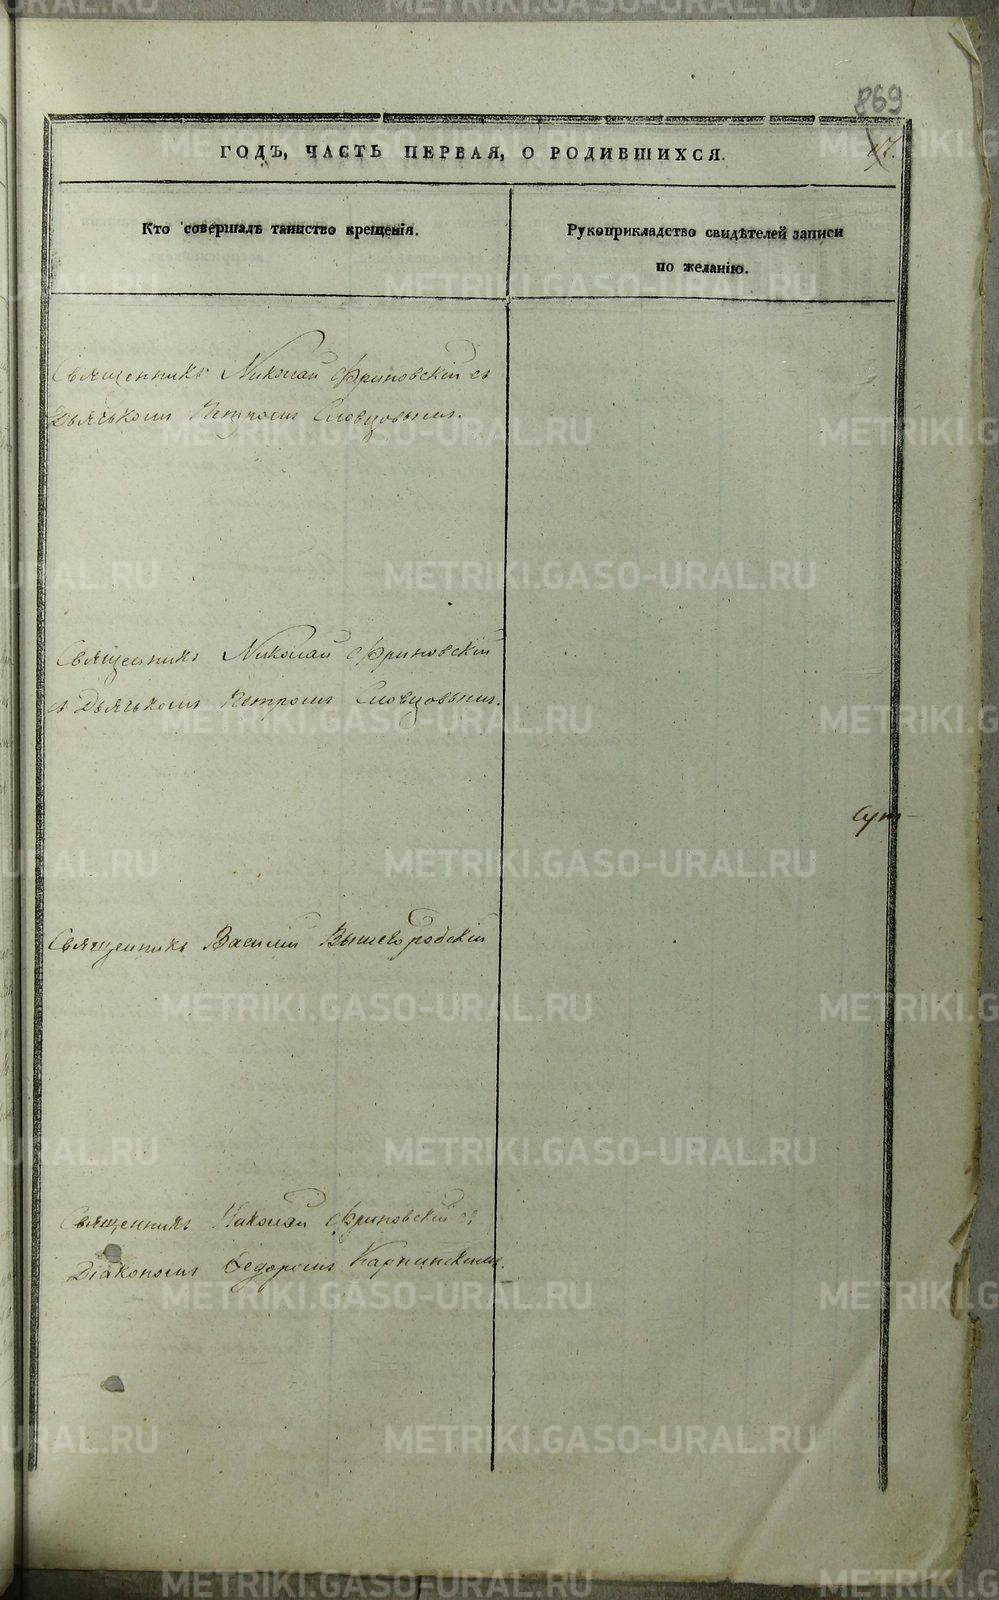 869
ГОДЪ, ЧАСТЬ ПЕРВАЯ, О РОДИВШИХСЯ.
17.
Кто совершалъ таинство крещенія.
Рукоприкладство свидѣтелей записи
по желанію.
Священникъ Николай Фриновскій съ
Дьячькомъ Петромъ Словцовымъ.
Священникъ Николай Фриновскій
съ Дьячькомъ Петромъ Словцовымъ.
Священникъ Василій Вышегородскій
Священникъ Николай Фриновскій съ
Діакономъ Ѳедоромъ Карпинскимъ.
METRIKI.GASO-URAL.RU